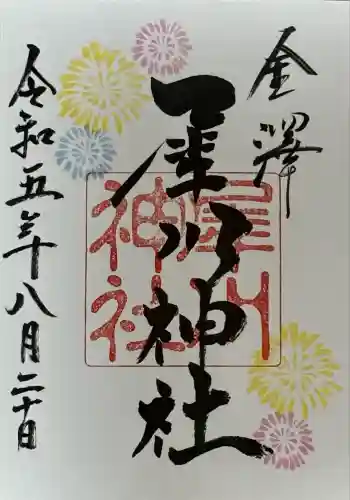 金澤
犀川神社
犀川神社
令和五年八月二十日